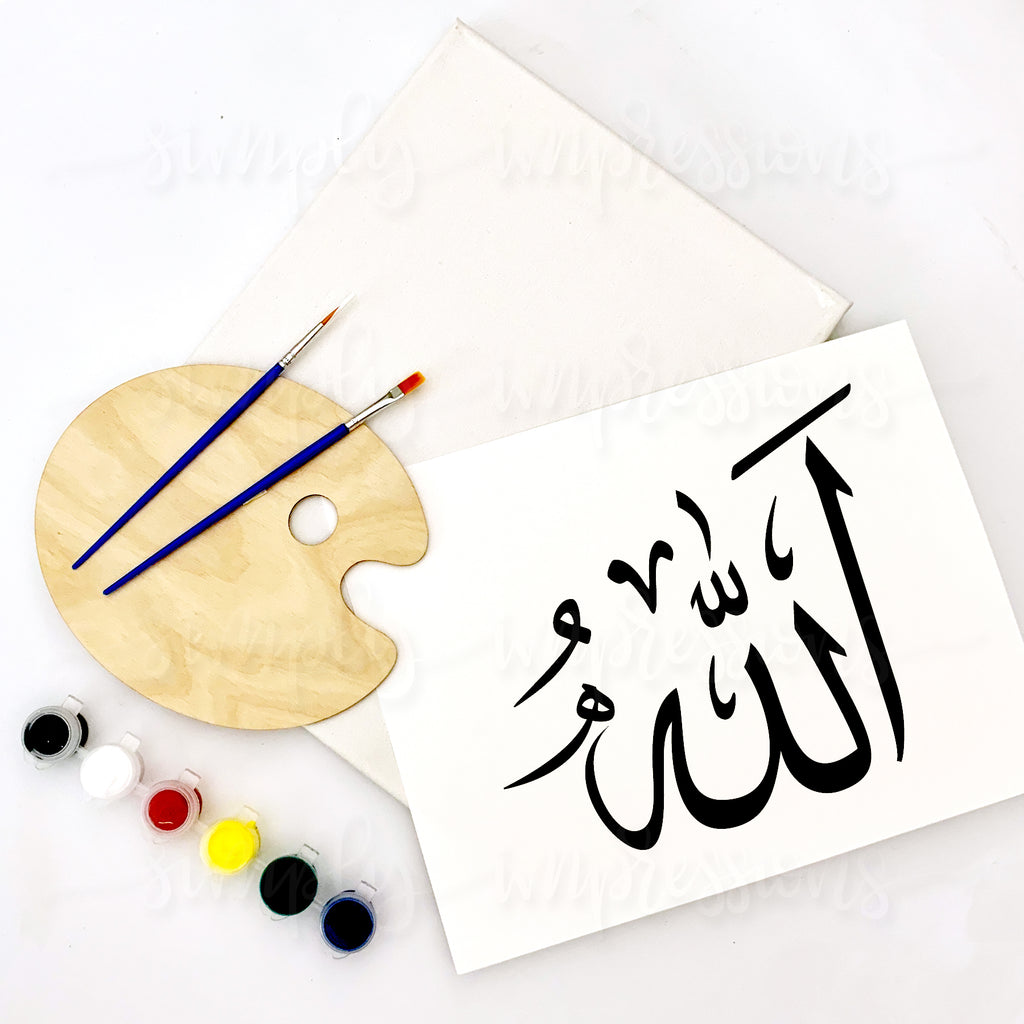 simply impressions
simply impressions
اَللّٰهُ
simply impressions
simply impressions